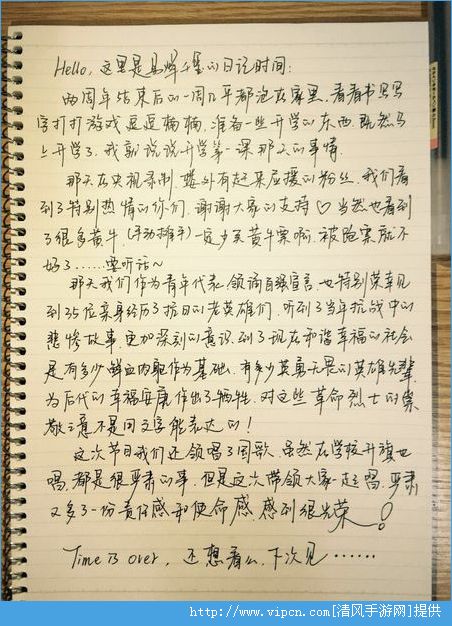 Hello，这里是易烊千玺的日记时间：
两周年结束后的一周几乎都泡在家里，看看书写写
字打打游戏逗逗楠楠，准备一些开学的东西，既然马
上开学了，我就说说开学第一课那天的事情.
那天在央视录制，楼外有起来应援的粉丝，我们看
到了特别热情的你们，谢谢大家的支持♡当然也看到
了很多黄牛（手动推手）一定少买黄牛票啊，被骗票就不
好了……要听话~
那天我们作为青年代表领诵自强宣言，也特别荣幸见
到35位亲身经历了抗日的老英雄们，听到了当年抗战中的
悲惨故事，更加深刻的意识到了现在和谐幸福的社会
是有多少鲜血肉躯作为基础，有多少英勇无畏的英雄先辈
为后代的幸福安康作出了牺牲，对这些革命烈士的崇
敬之意不是用文字能表达的！
这次节目我们还领唱了国歌，虽然在学校升旗也
唱，都是很严肃的事，但是这次带领大家一起唱，严肃
又多了一份责任感和使命感，感到很光荣！
Time is over，还想看么，下次见……
http://www.vipcn.com[清风手游网]提供